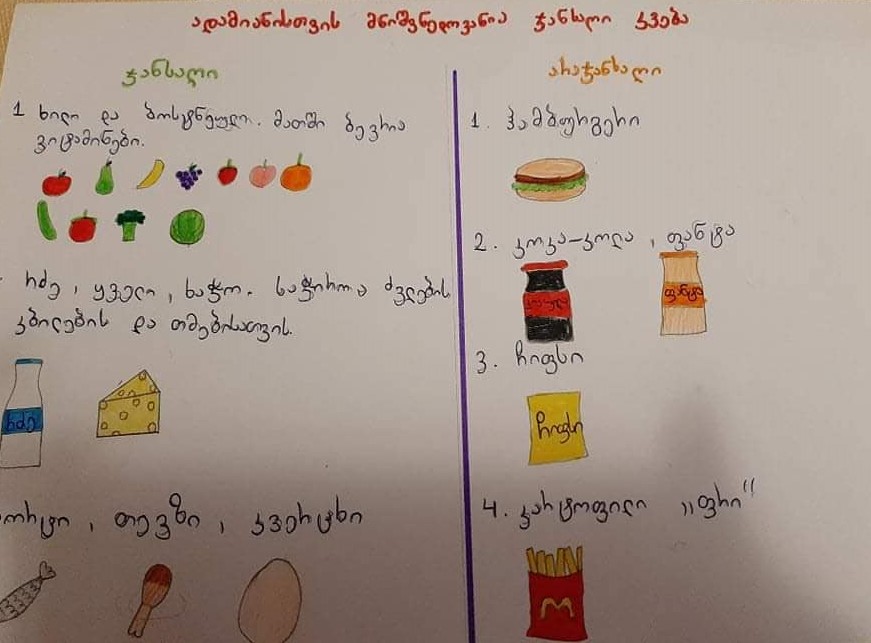 ადამიანისთვის მნიშვნელოვანია ჯანსაღი კვება
ჯანსაღი
1 ხილი და ბოსტნეული. მათში ბევრია
ვიტამინები.
რძე, ყველი, ხაჭო. საჭიროა ძვლების
კბილების და თმებისათვის.
რძე
თევზი, კვერცხი
არაჯანსაღი
1. ჰამბურგერი
2. კოკა-კოლა, ფანტა
ფანტა
3. ჩიფსი
ჩიფსი
4. კარტოფილი „ფრი"
M